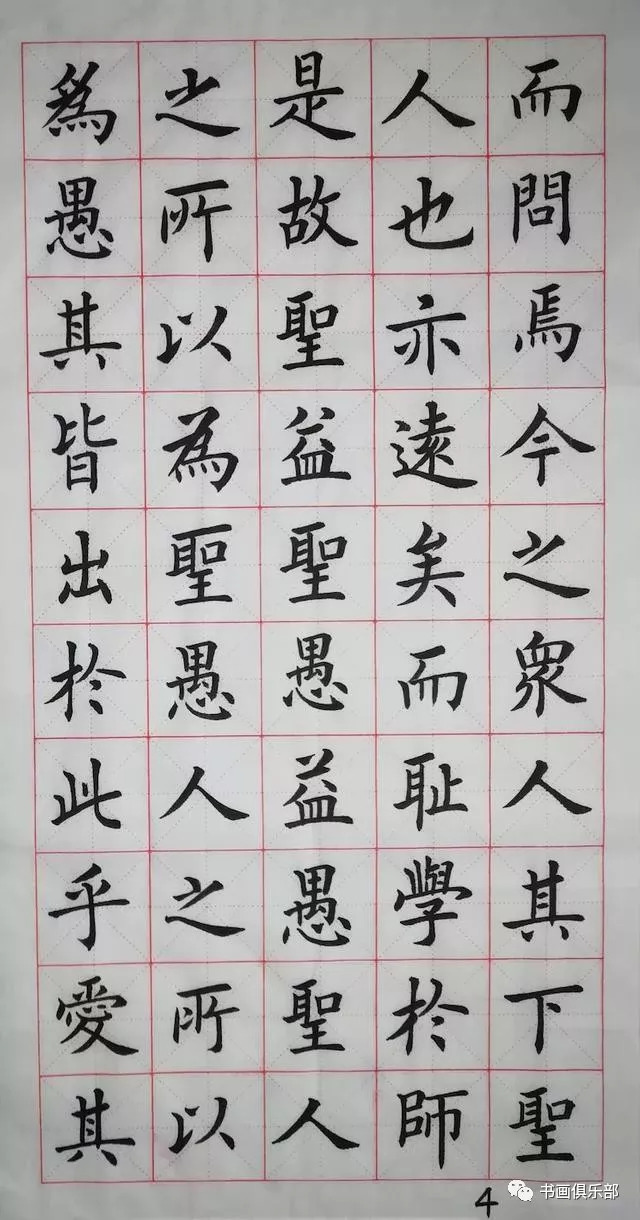 而問焉今之衆人其下聖
人也亦遠矣而耻學於師
是故聖益聖愚益愚聖人
之所以為聖愚人之所以
為愚其皆出於此乎愛其
4
书画俱乐部